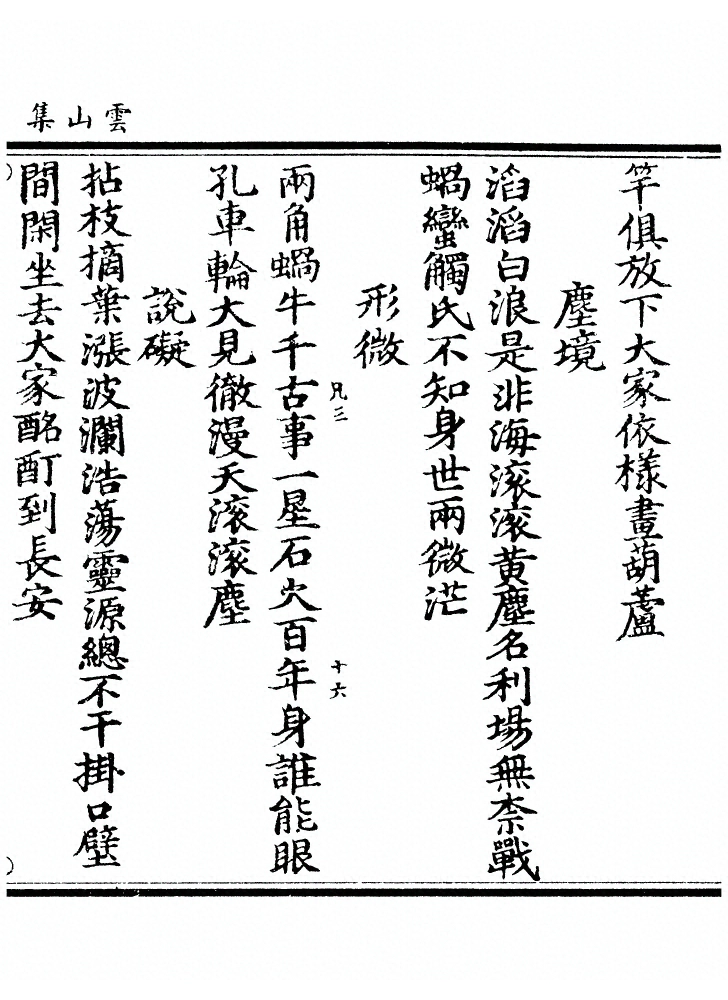 雲山集
竿俱放下大家依樣畫葫蘆
塵境
滔滔白浪是非海滚滚黄塵名利場無柰戰
蝸蠻觸氏不知身世兩微茫
形微
兄三
十六
兩角蝸牛千古事一星石火百年身誰能眼
孔車輪大見徹漫天滚滚塵
說礙
拈枝摘葉漲波瀾浩蕩靈源總不干掛口壁
間閑坐去大家酩酊到長安